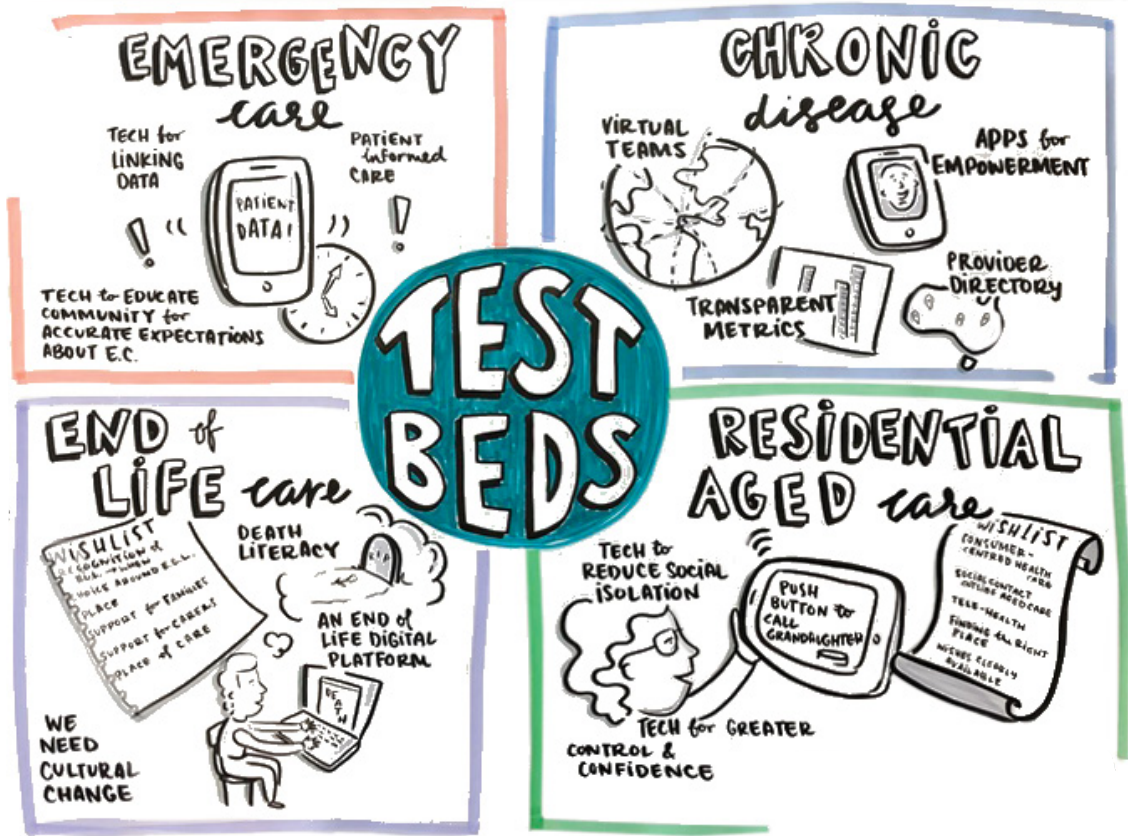 EMERGENCY
care
TECH for
LINKING
DATA
PATIENT
informed
CARE
PATIENT
DATA!
TECH to EDUCATE
COMMUNITY for
ACCURATE EXPECTATIONS
ABOUT E.C.
CHRONIC
disease
VIRTUAL
TEAMS
APPS for
EMPOWERMENT
TRANSPARENT
METRICS
PROVIDER
DIRECTORY
TEST
BEDS
END of
LIFE care
WISHLIST
RECOGNITION of
VOICE AROUND
PLACE
SUPPORT for FAMILIES
SUPPORT for CARERS
PLACE of CARE
DEATH
LITERACY
R.I.P
AN END of
LIFE DIGITAL
PLATFORM
DEATH
WE
NEED
CULTURAL
CHANGE
RESIDENTIAL
AGED care
TECH to
REDUCE SOCIAL
ISOLATION
PUSH
BUTTON to
CALL
GRANDAUGHTER
WISHLIST
CONSUMER-
CENTRED HEALTH
CARE
SOCIAL CONTACT
OUTSIDE AGED CARE
TELE-HEALTH
FINDING the RIGHT
PLACE
WISHES CLEARLY
AVAILABLE
TECH for GREATER
CONTROL &
CONFIDENCE